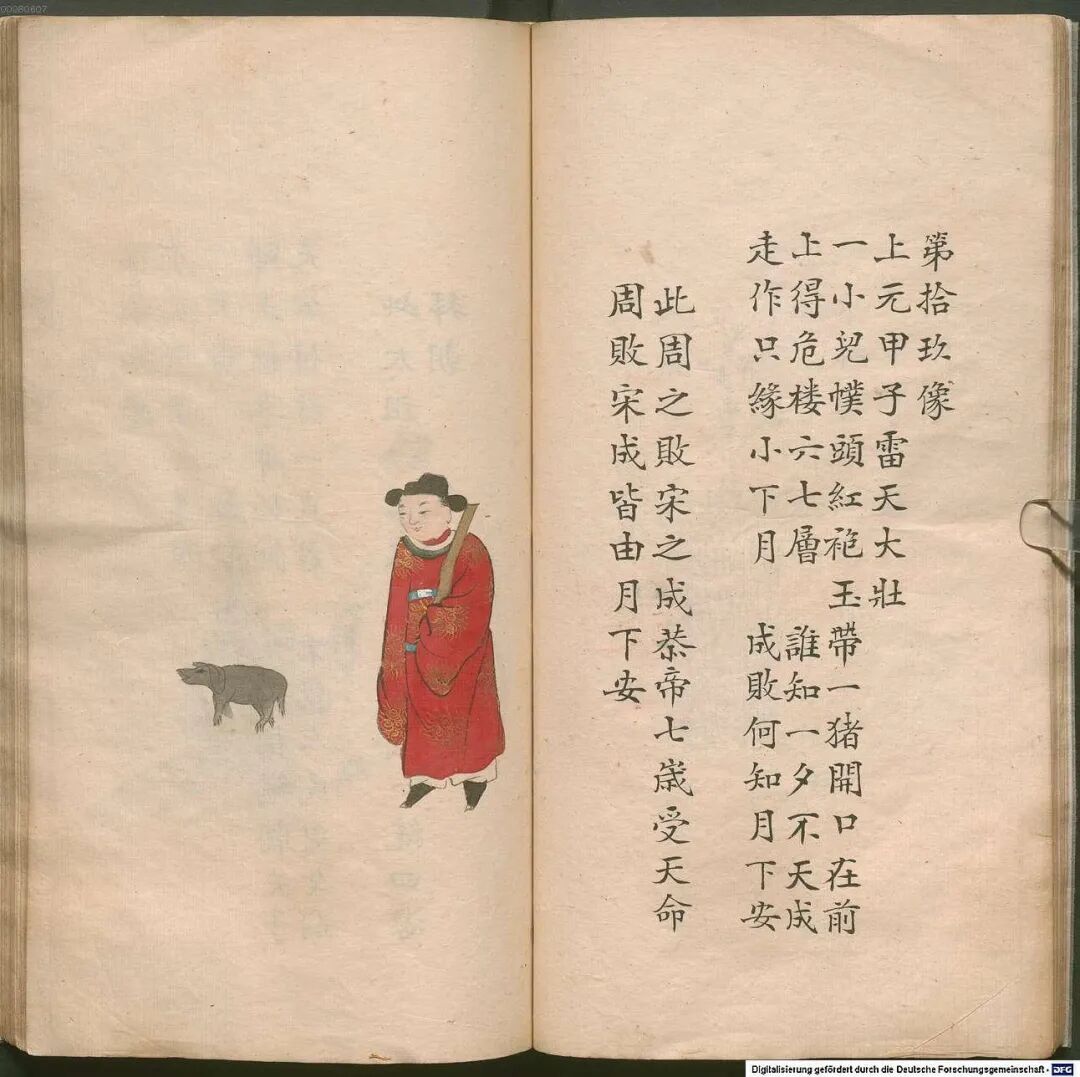 第拾玖像
上元甲子雷天大壯
一小兒幞頭紅袍玉帶一猪開口在前
上得危楼六七層　誰知一夕不天成
走作只緣小下月　成敗何知月下安
此周之敗宋之成恭帝七歲受天命
周敗宋成皆由月下安
Digitalisierung gefördert durch die Deutsche Forschungsgemeinschaft - DFG